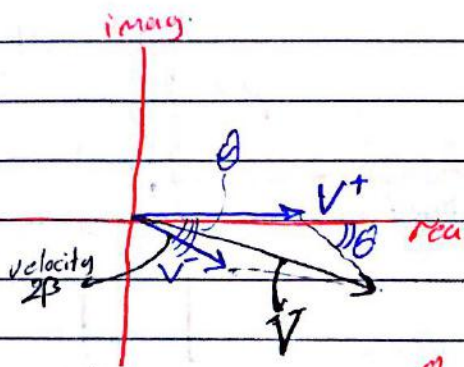 imag.
θ
V⁺
rea
θ
velocity
2β
V⁻
V